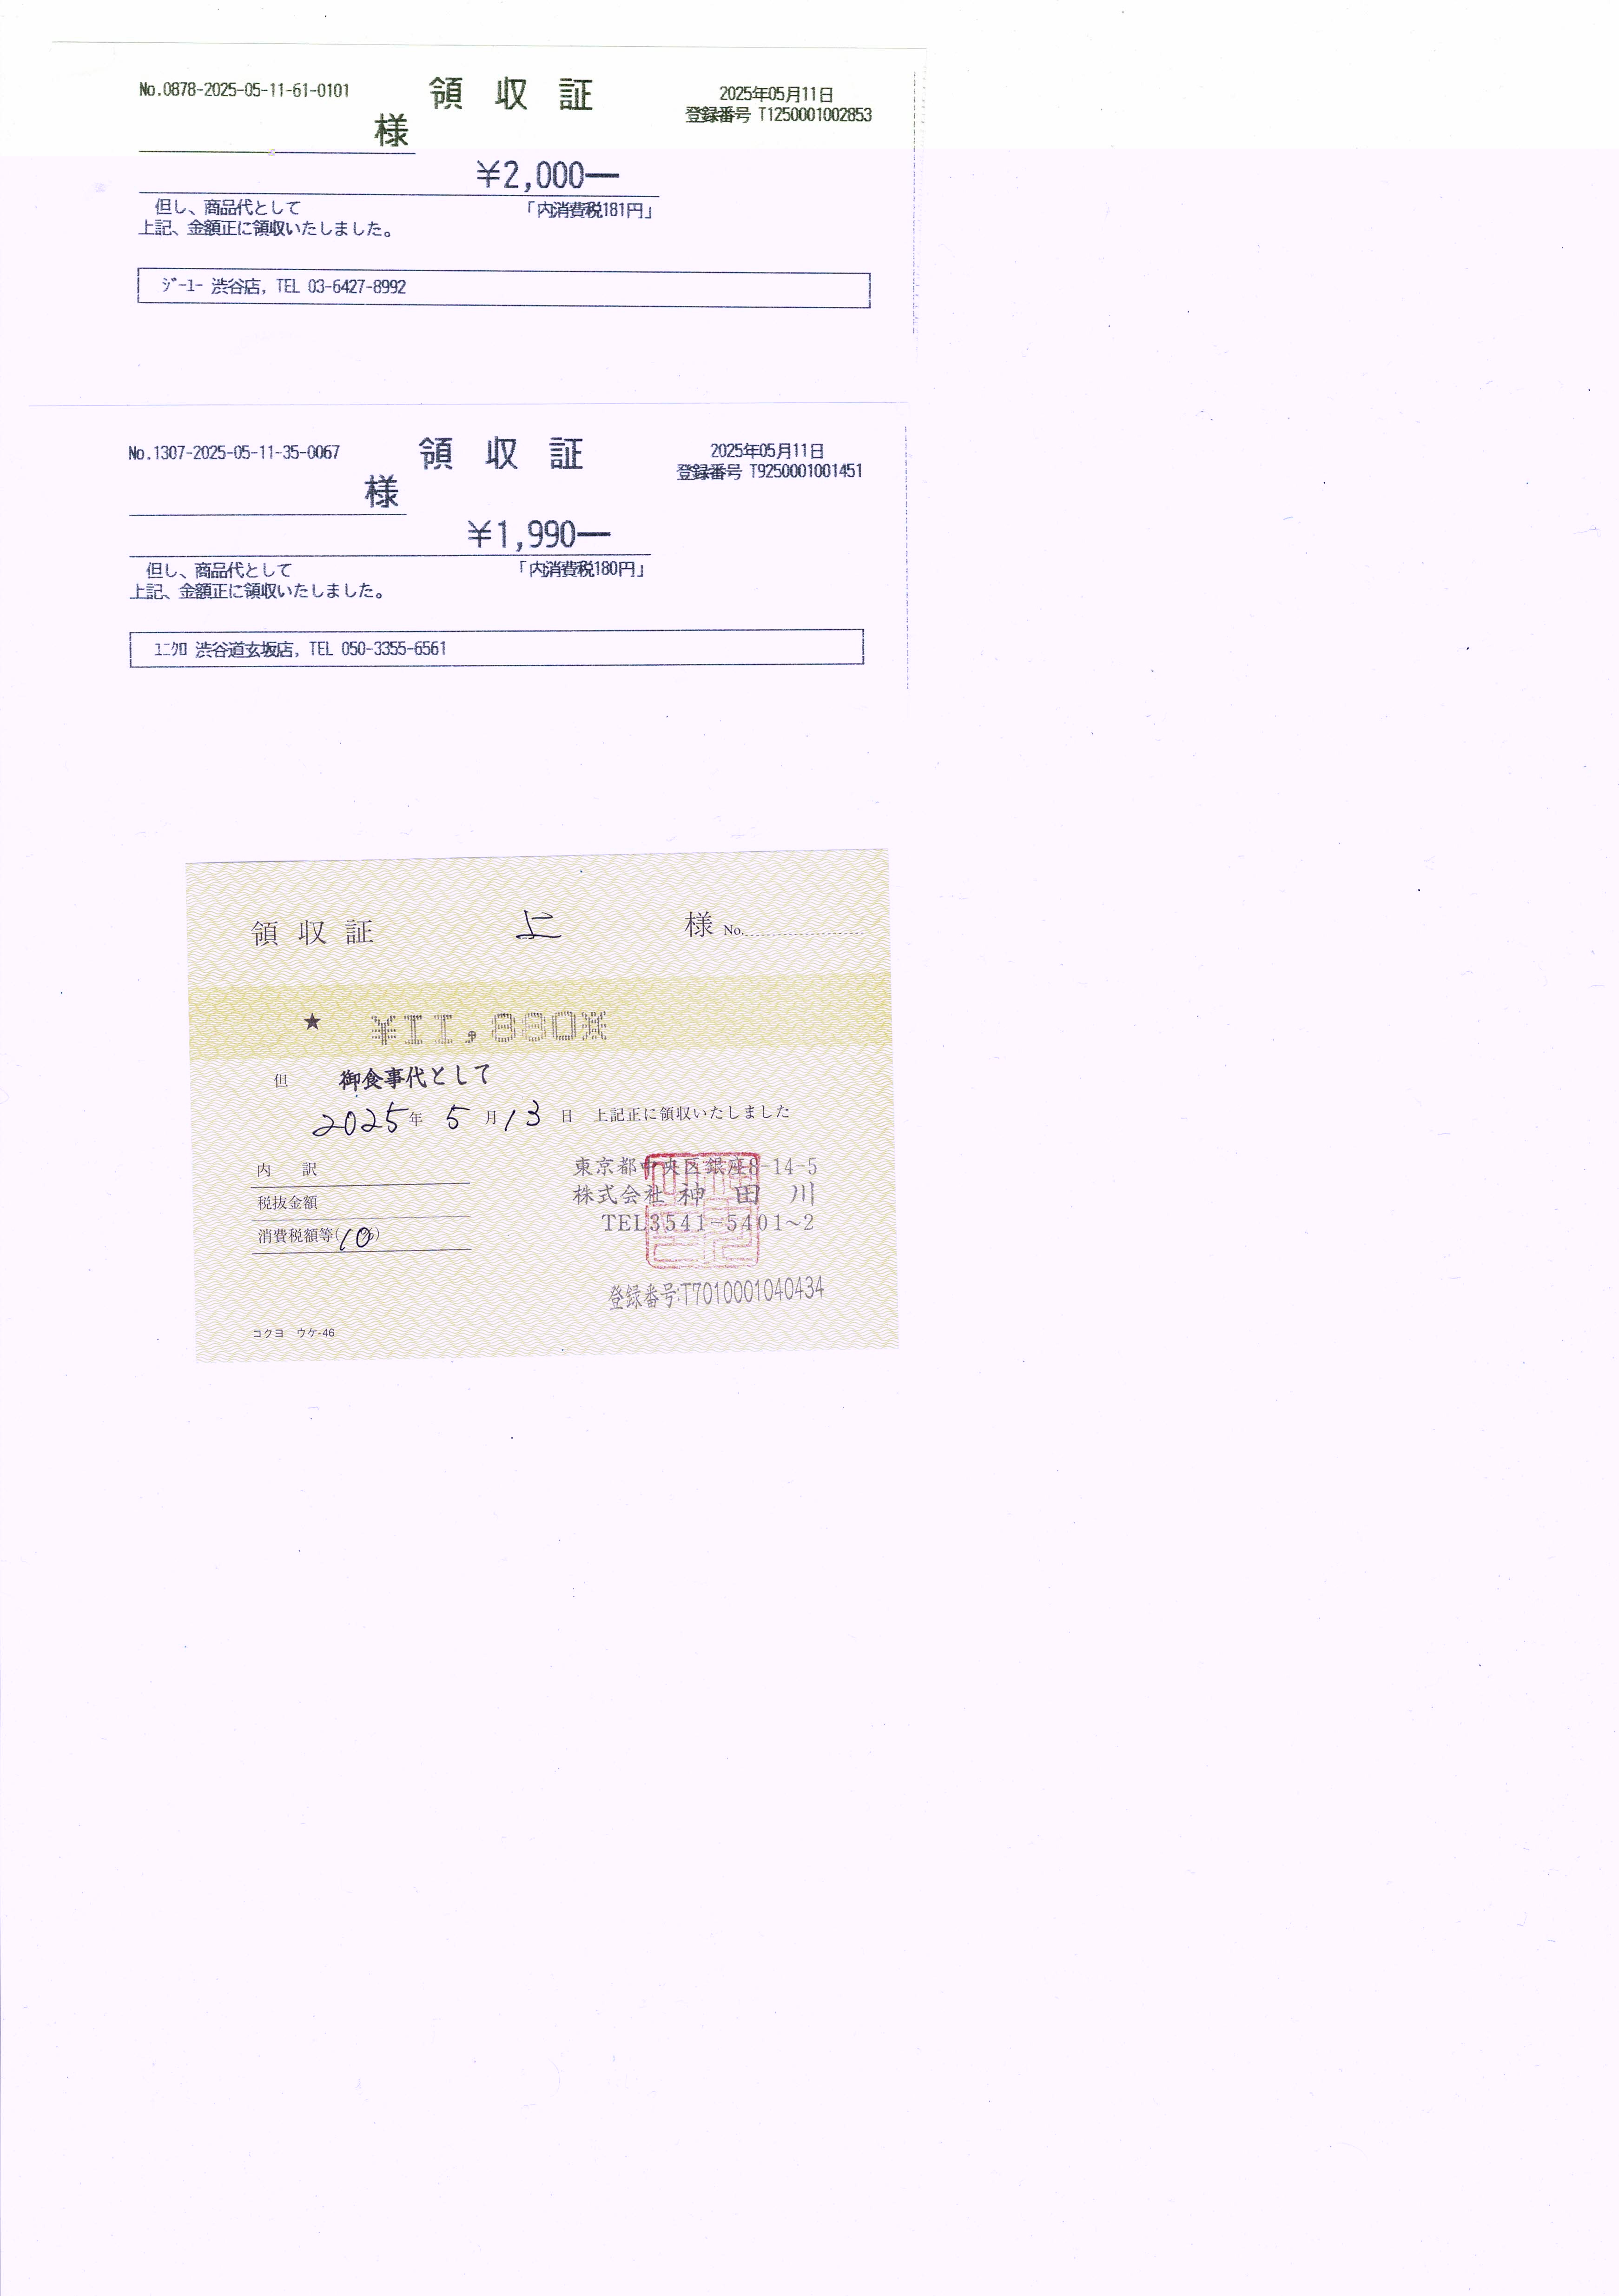 No.0878-2025-05-11-61-0101
領収証
2025年05月11日
登録番号 T1250001002853
様
¥2,000―
但し、商品代として
「内消費税181円」
上記、金額正に領収いたしました。
ｼﾞｰﾕｰ 渋谷店, TEL 03-6427-8992
No.1307-2025-05-11-35-0067
領収証
2025年05月11日
登録番号 T9250001001451
様
¥1,990―
但し、商品代として
「内消費税180円」
上記、金額正に領収いたしました。
ﾕﾆｸﾛ 渋谷道玄坂店, TEL 050-3355-6561
領収証 上 様 No.
★ ¥11,880※
但 御食事代として
2025年 5月13日 上記正に領収いたしました
内 訳
税抜金額
消費税額等(10%)
東京都中央区銀座8-14-5
株式会社 神田川
TEL3541-5401~2
登録番号:T7010001040434
コクヨ ウケ-46